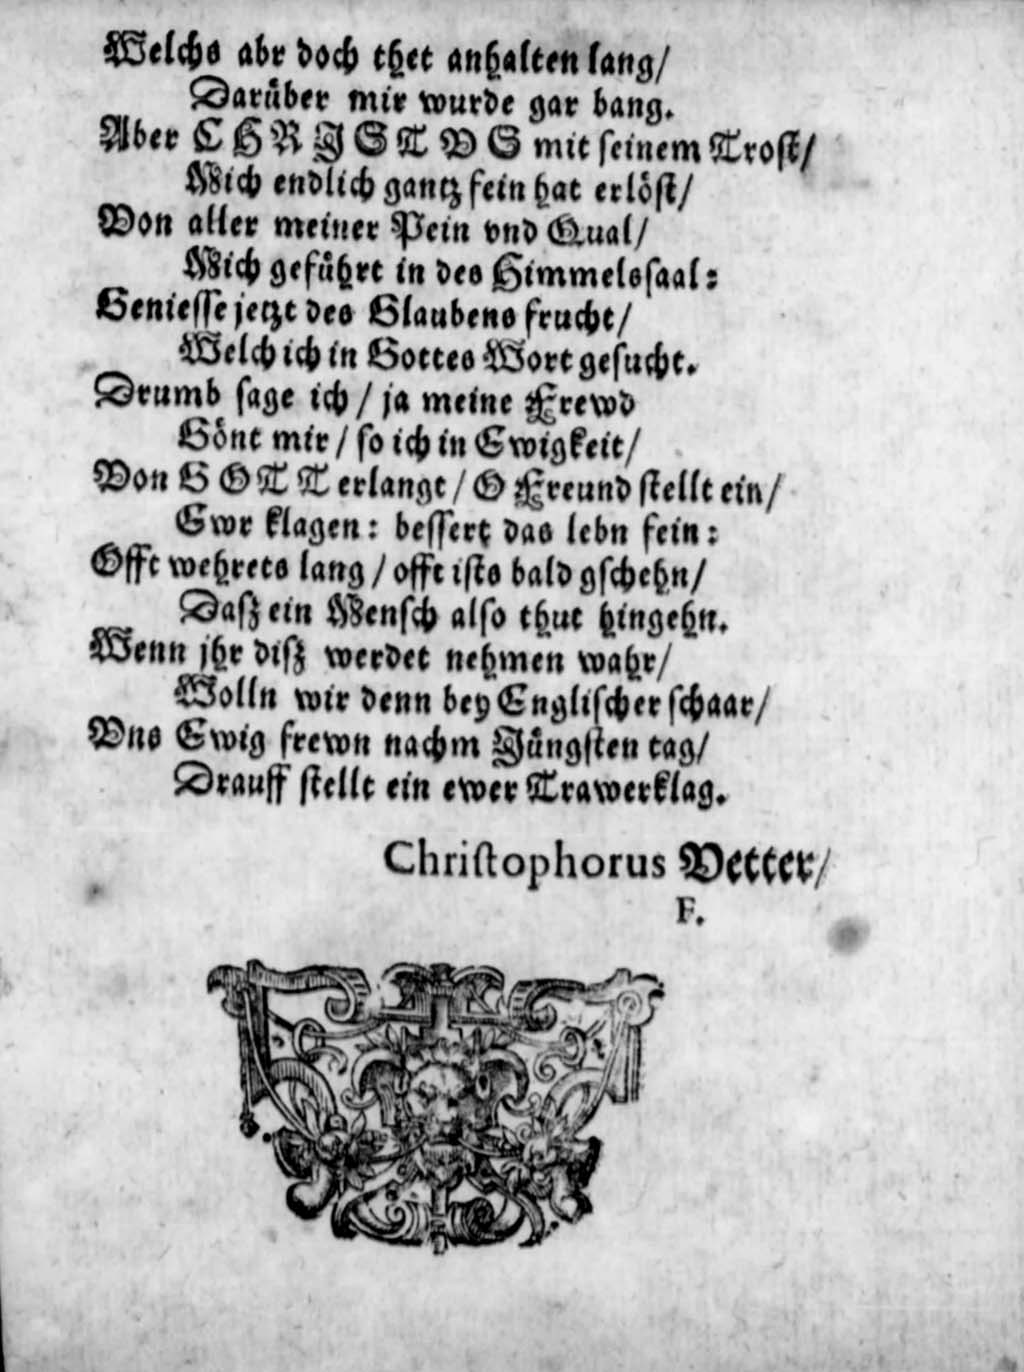 Welchs abr doch thet anhalten lang/
Darüber mir wurde gar bang.
Aber CHRISTVS mit seinem Trost/
Mich endlich gantz fein hat erlöst/
Von aller meiner Pein vnd Qual/
Mich geführt in des Himmelssaal:
Geniesse jetzt des Glaubens frucht/
Welch ich in Gottes Wort gesucht.
Drumb sage ich / ja meine Frewd
Gönt mir / so ich in Ewigkeit/
Von GOTT erlangt / O Freund stellt ein/
Ewr klagen: bessert das lebn fein:
Offt wehrets lang / offt ists bald gschehn/
Dasz ein Mensch also thut hingehn.
Wenn jhr disz werdet nehmen wahr/
Wolln wir denn bey Englischer schaar/
Vns Ewig frewn nachm Jüngsten tag/
Drauff stellt ein ewer Trawerklag.
Christophorus Vetter/
F.